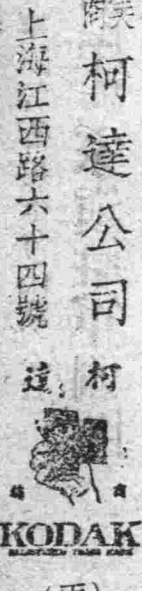 柯達公司
上海江西路六十四號
柯達
商
KODAK